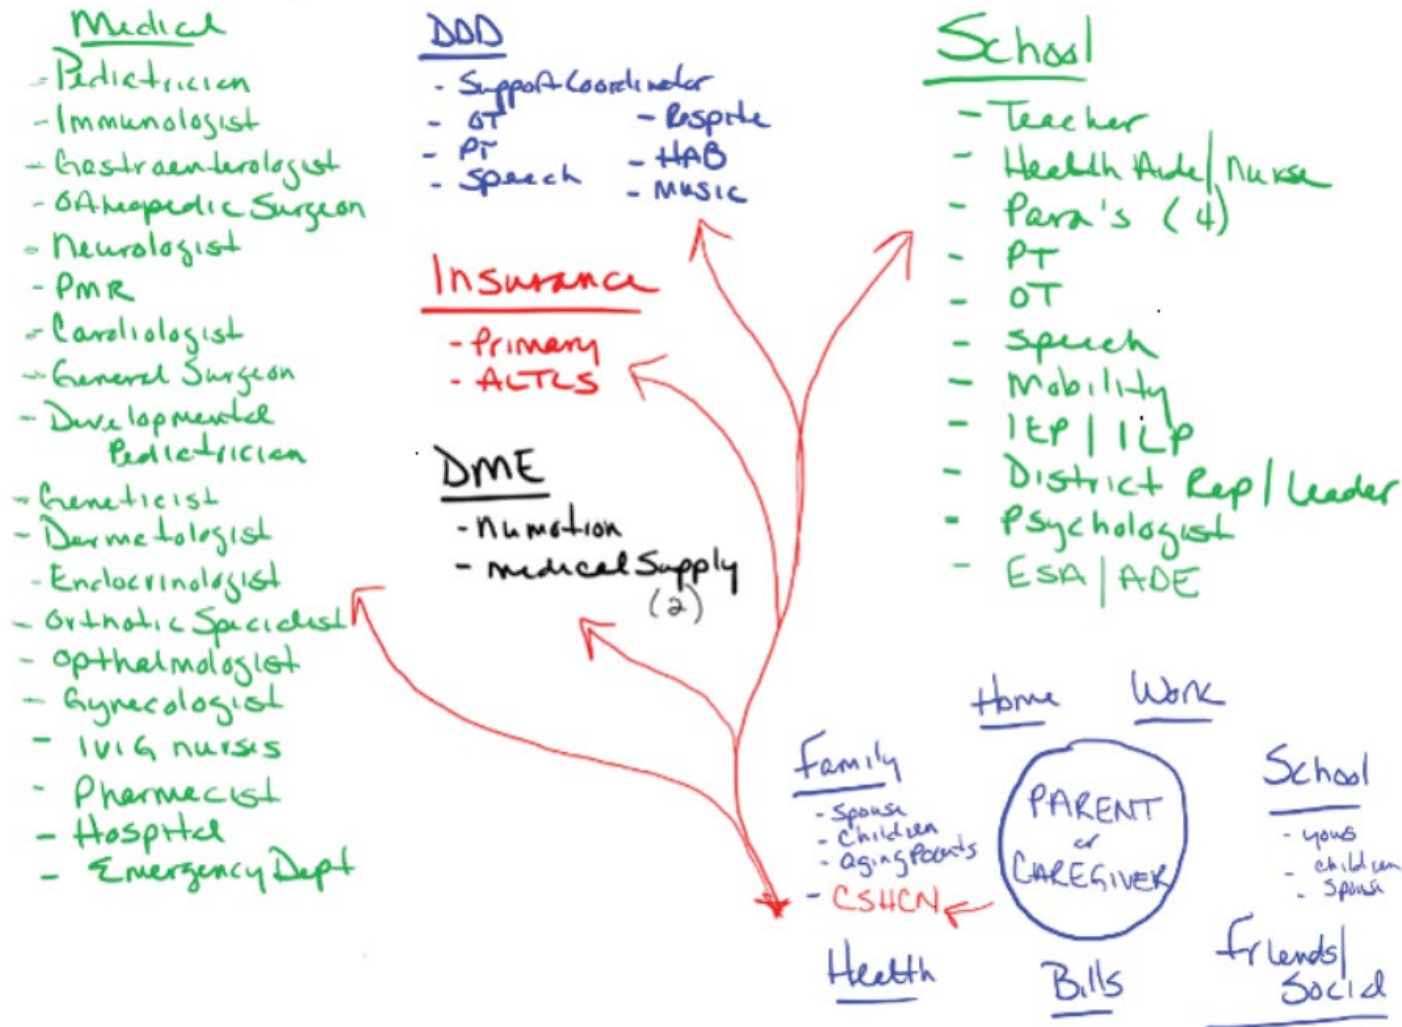 Medical
- Pediatrician
- Immunologist
- Gastroenterologist
- Orthopedic Surgeon
- Neurologist
- PMR
- Cardiologist
- General Surgeon
- Developmental
Pediatrician
- Geneticist
- Dermatologist
- Endocrinologist
- Orthotic Specialist
- Opthalmologist
- Gynecologist
- IVIG nurses
- Pharmacist
- Hospital
- Emergency Dept
DDD
- Support Coordinator
- OT
- PT
- Speech
- Respite
- HAB
- Music
Insurance
- Primary
- ALTCS
DME
- Numotion
- medical Supply
(2)
School
- Teacher
- Health Aide/Nurse
- Para's (4)
- PT
- OT
- Speech
- Mobility
- IEP | ILP
- District Rep/Leader
- Psychologist
- ESA | ADE
Home
Work
Family
- Spouse
- Children
- Aging Parents
- CSHCN
PARENT
or
CAREGIVER
School
- yours
- children
- Spouse
Health
Bills
Friends/
Social